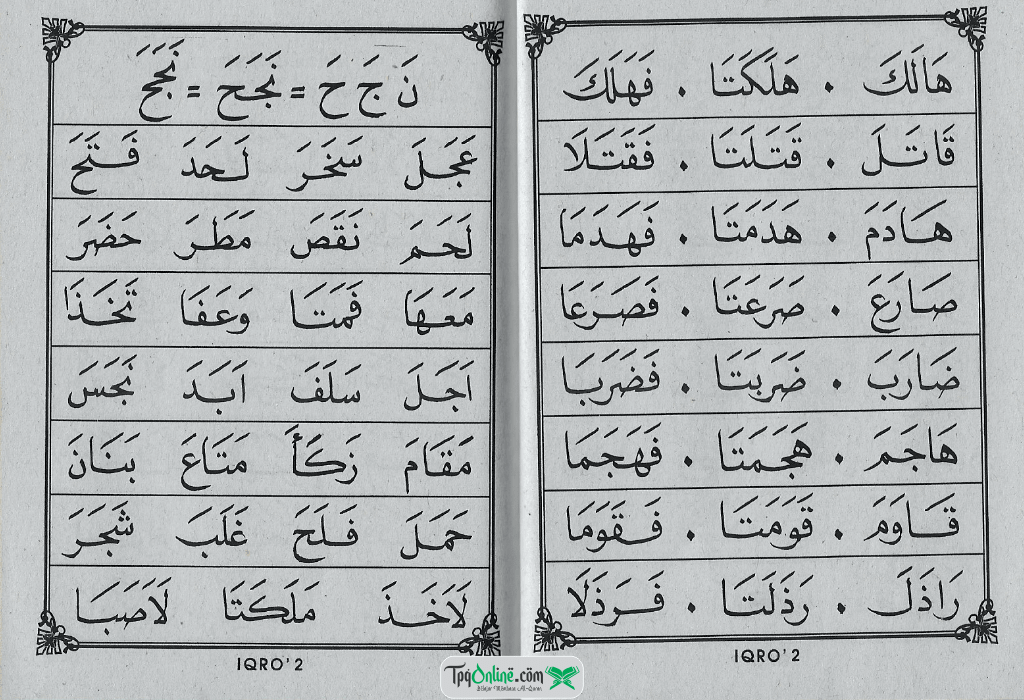 هَالَكَ . هَلَكَتَا . فَهَلَكَ
قَاتَلَ . قَتَلَتَا . فَقَتَلَا
هَادَمَ . هَدَمَتَا . فَهَدَمَا
صَارَعَ . صَرَعَتَا . فَصَرَعَا
ضَارَبَ . ضَرَبَتَا . فَضَرَبَا
هَاجَمَ . هَجَمَتَا . فَهَجَمَا
قَاوَمَ . قَوَمَتَا . فَقَوَمَا
رَاذَلَ . رَذَلَتَا . فَرَذَلَا
IQRO' 2
نَ جَ حَ = نَجَحَ = نَجَحَ
عَجَلَ سَخَرَ لَحَدَ فَتَحَ
لَحَمَ نَقَصَ مَطَرَ حَضَرَ
مَعَهَا قَمَتَا وَعَفَا تَخَذَا
اَجَلَ سَلَفَ اَبَدَ نَجَسَ
مَقَامَ زَكَأَ مَتَاعَ بَنَانَ
حَمَلَ فَلَحَ غَلَبَ شَجَرَ
لَاَخَذَ مَلَكَتَا لَاَصَبَا
IQRO' 2
TpqOnline.com
Belajar Membaca Al-Quran